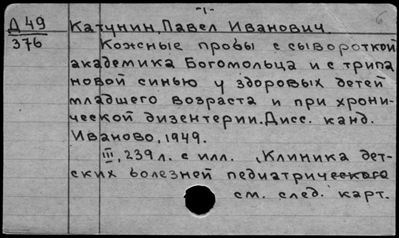 -1-
Д 49 Катунин, Павел Иванович.
376 Кожные пробы с сывороткой
академика Богомольца и с трипа
новой синью у здоровых детей
младшего возраста и при хрони-
ческой дизентерии. Дисс. канд.
Иваново, 1949.
III, 239 л. с илл. (Клиника дет-
ских болезней педиатрического
см. след. карт.